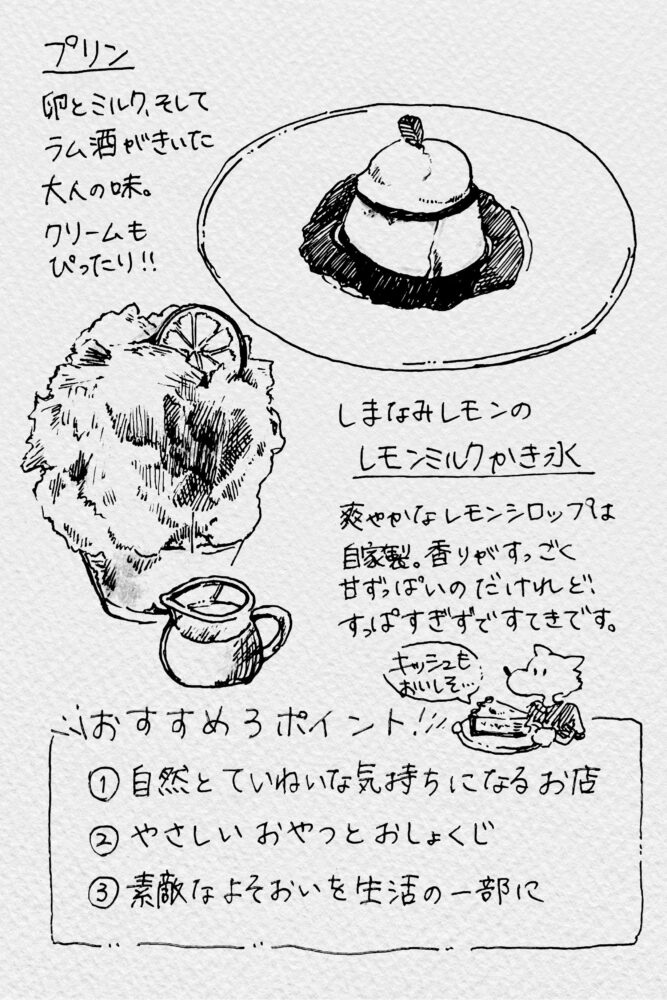 プリン
卵とミルク、そして
ラム酒がきいた
大人の味。
クリームも
ぴったり!!
しまなみレモンの
レモンミルクかき氷
爽やかなレモンシロップは
自家製。香りがすっごく
甘ずっぱいのだけれど、
すっぱすぎずですてきです。
キッシュも
おいしそ…
おすすめ3ポイント!!!
① 自然とていねいな気持ちになるお店
② やさしいおやつとおしょくじ
③ 素敵なよそおいを生活の一部に